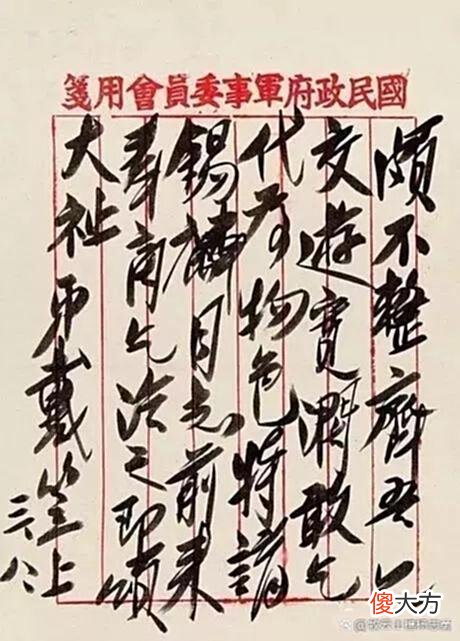 國民政府軍事委員會用箋
頗不整齊吾
交遊寬闊敢乞
代為物色特請
錫同志前來
奉商乞洽之即頌
大祉 弟戴笠上
三八
傻大方